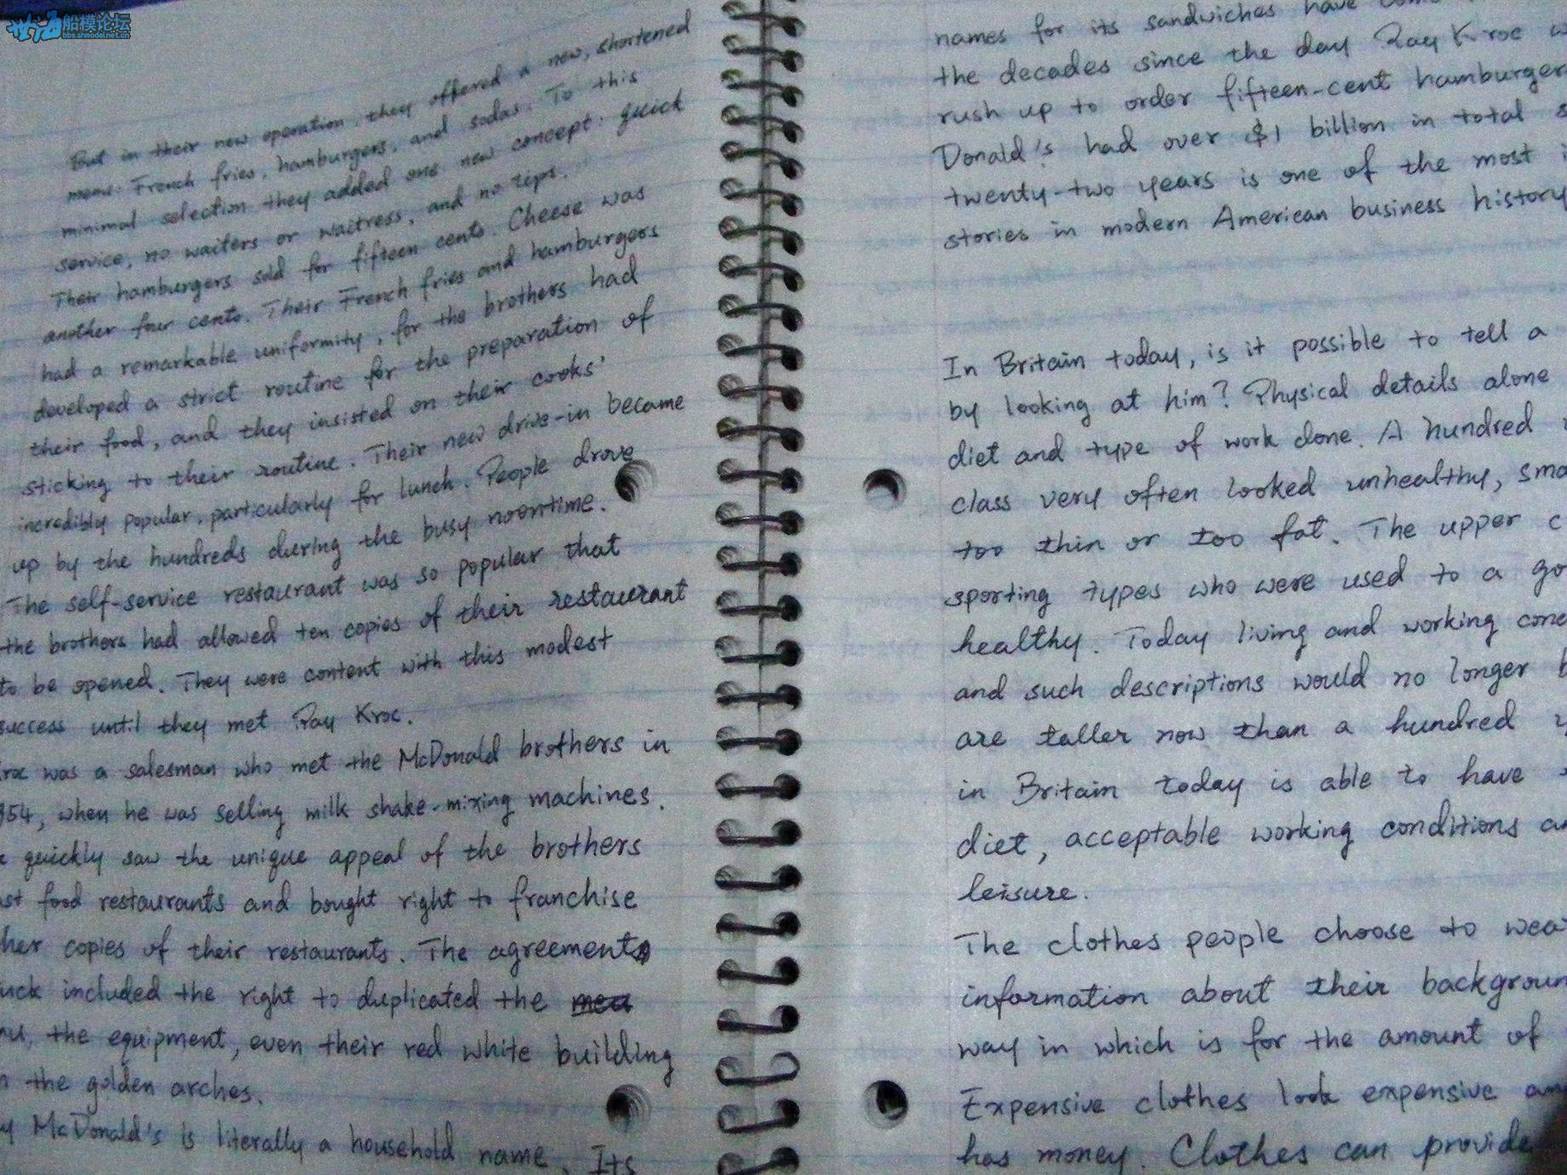 船模论坛
bbs.shmodel.net.cn
But in their new operation, they offered a new, shortened
menu: French fries, hamburgers, and sodas. To this
minimal selection they added one new concept: quick
service, no waiters or waitress, and no tips.
Their hamburgers sold for fifteen cents. Cheese was
another four cents. Their French fries and hamburgers
had a remarkable uniformity, for the brothers had
developed a strict routine for the preparation of
their food, and they insisted on their cooks'
sticking to their routine. Their new drive-in became
incredibly popular, particularly for lunch. People drove
up by the hundreds during the busy noontime.
The self-service restaurant was so popular that
the brothers had allowed ten copies of their restaurant
to be opened. They were content with this modest
success until they met Ray Kroc.
roc was a salesman who met the McDonald brothers in
954, when he was selling milk shake-mixing machines.
e quickly saw the unique appeal of the brothers
ast food restaurants and bought right to franchise
her copies of their restaurants. The agreements
uck included the right to duplicated the
nu, the equipment, even their red white building
h the golden arches.
y McDonald's is literally a household name. Its
names for its sandwiches have
the decades since the day Ray Kroc w
rush up to order fifteen-cent hamburger
Donald's had over $1 billion in total s
twenty-two years is one of the most i
stories in modern American business history
In Britain today, is it possible to tell a
by looking at him? Physical details alone
diet and type of work done. A hundred
class very often looked unhealthy, sma
too thin or too fat. The upper c
sporting types who were used to a go
healthy. Today living and working cond
and such descriptions would no longer b
are taller now than a hundred y
in Britain today is able to have
diet, acceptable working conditions an
leisure.
The clothes people choose to wear
information about their backgroun
way in which is for the amount of
Expensive clothes look expensive an
has money. Clothes can provide